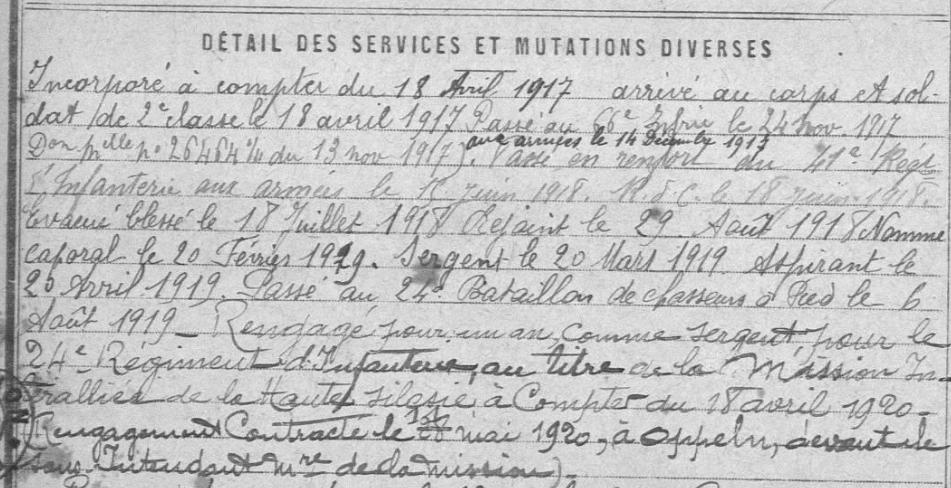 DÉTAIL DES SERVICES ET MUTATIONS DIVERSES
Incorporé à compter du 18 Avril 1917 arrivé au corps et sol-
dat de 2e classe le 18 avril 1917 Passé au 66e Infrie le 24 nov. 1917
aux armées le 14 Décembre 1917
Don pelle no du 13 nov 1917). Passé en renfort au 41e Régt
d'Infanterie aux armées le 15 juin 1918. R. d. C. le 18 juin 1918.
Evacué blessé le 18 Juillet 1918 Rejoint le 29 Août 1918 Nommé
caporal le 20 Février 1919. Sergent le 20 Mars 1919 Aspirant le
20 Avril 1919. Passé au 24e Bataillon de chasseurs à Pied le 6
Août 1919 – Rengagé pour un an, comme sergent pour le
24e Régiment d'Infanterie, au titre de la Mission In-
teralliée de la Haute Silésie, à Compter du 18 avril 1920 -
(Rengagement Contracté le mai 1920, à Oppeln, devant le
Sous-Intendant mre de la mission).